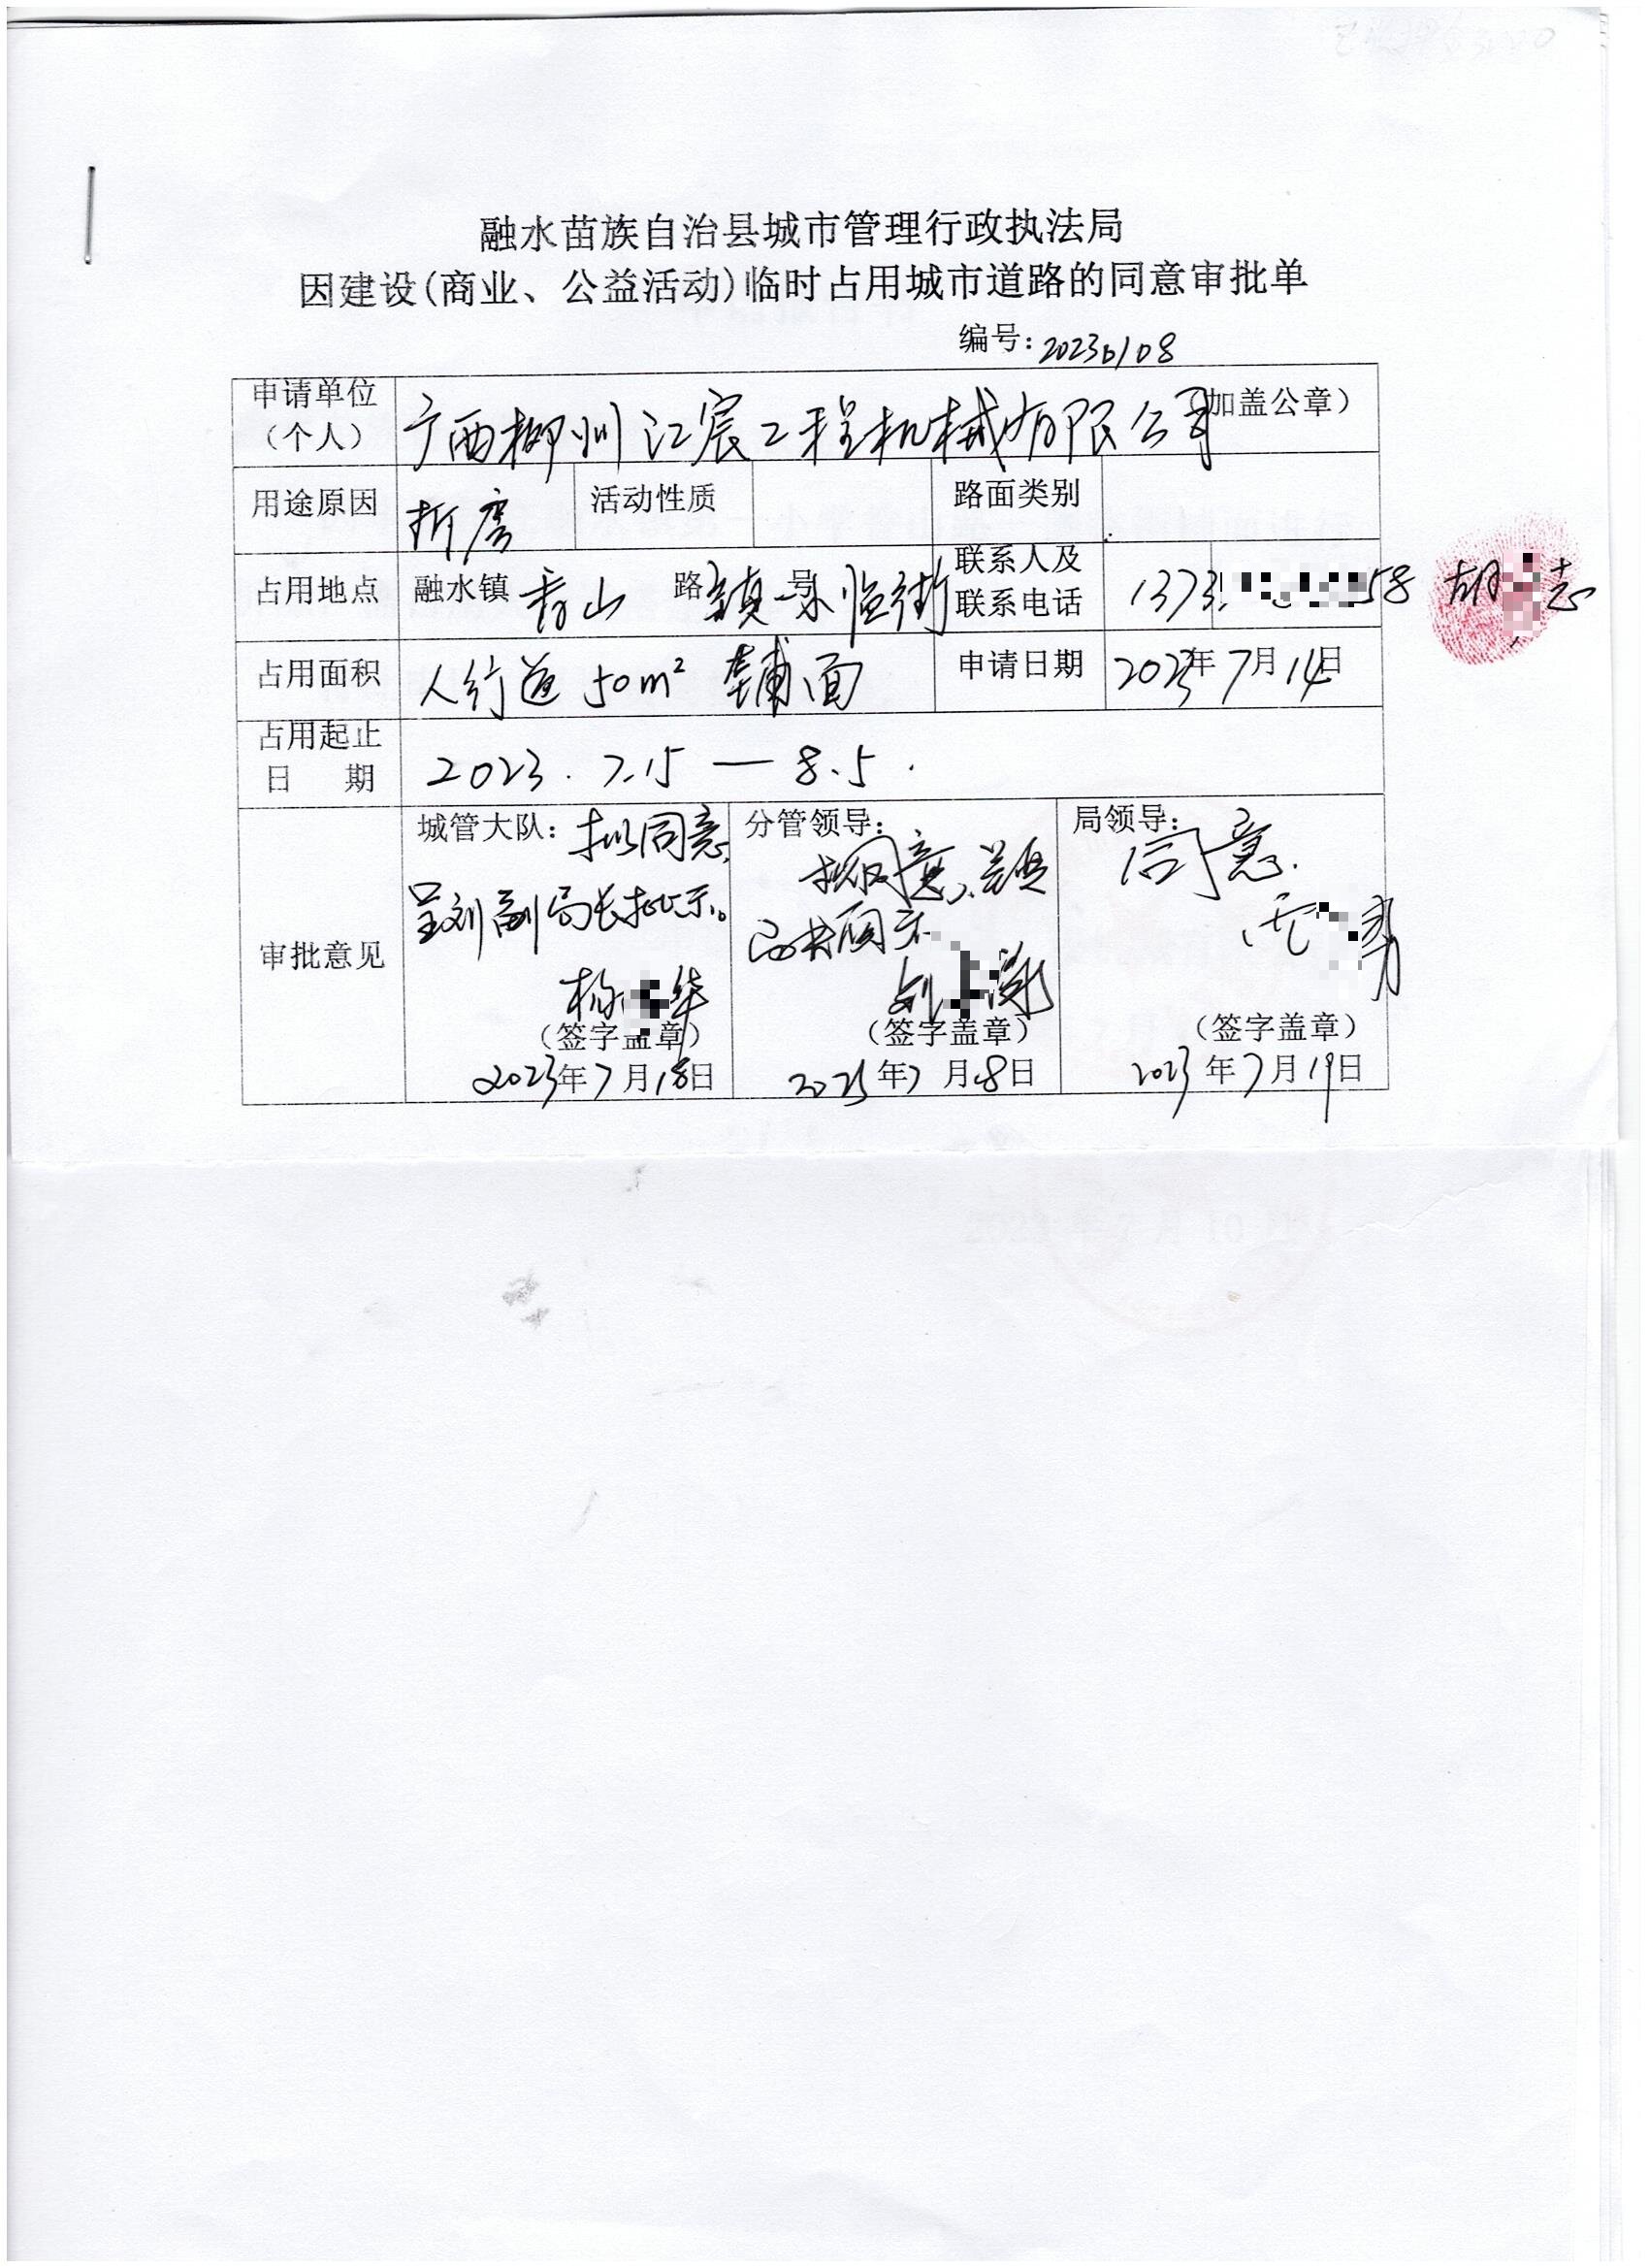 融水苗族自治县城市管理行政执法局
因建设(商业、公益活动)临时占用城市道路的同意审批单
编号:2023b108
申请单位(个人) 广西柳州江宸工程机械有限公司 加盖公章)
用途原因 拆 活动性质 路面类别
占用地点 融水镇 香山 路 号 临街 联系人及联系电话 1373 58 胡 志
占用面积 人行道 50m² 铺面 申请日期 2023年7月14日
占用起止日 期 2023.7.15—8.5.
审批意见
城管大队: 拟同意,
呈刘副局长批示。
杨 华
(签字盖章)
2023年7月18日
分管领导:
拟同意,呈
刘
(签字盖章)
2023年7月18日
局领导:
同意.
勇
(签字盖章)
2023年7月19日